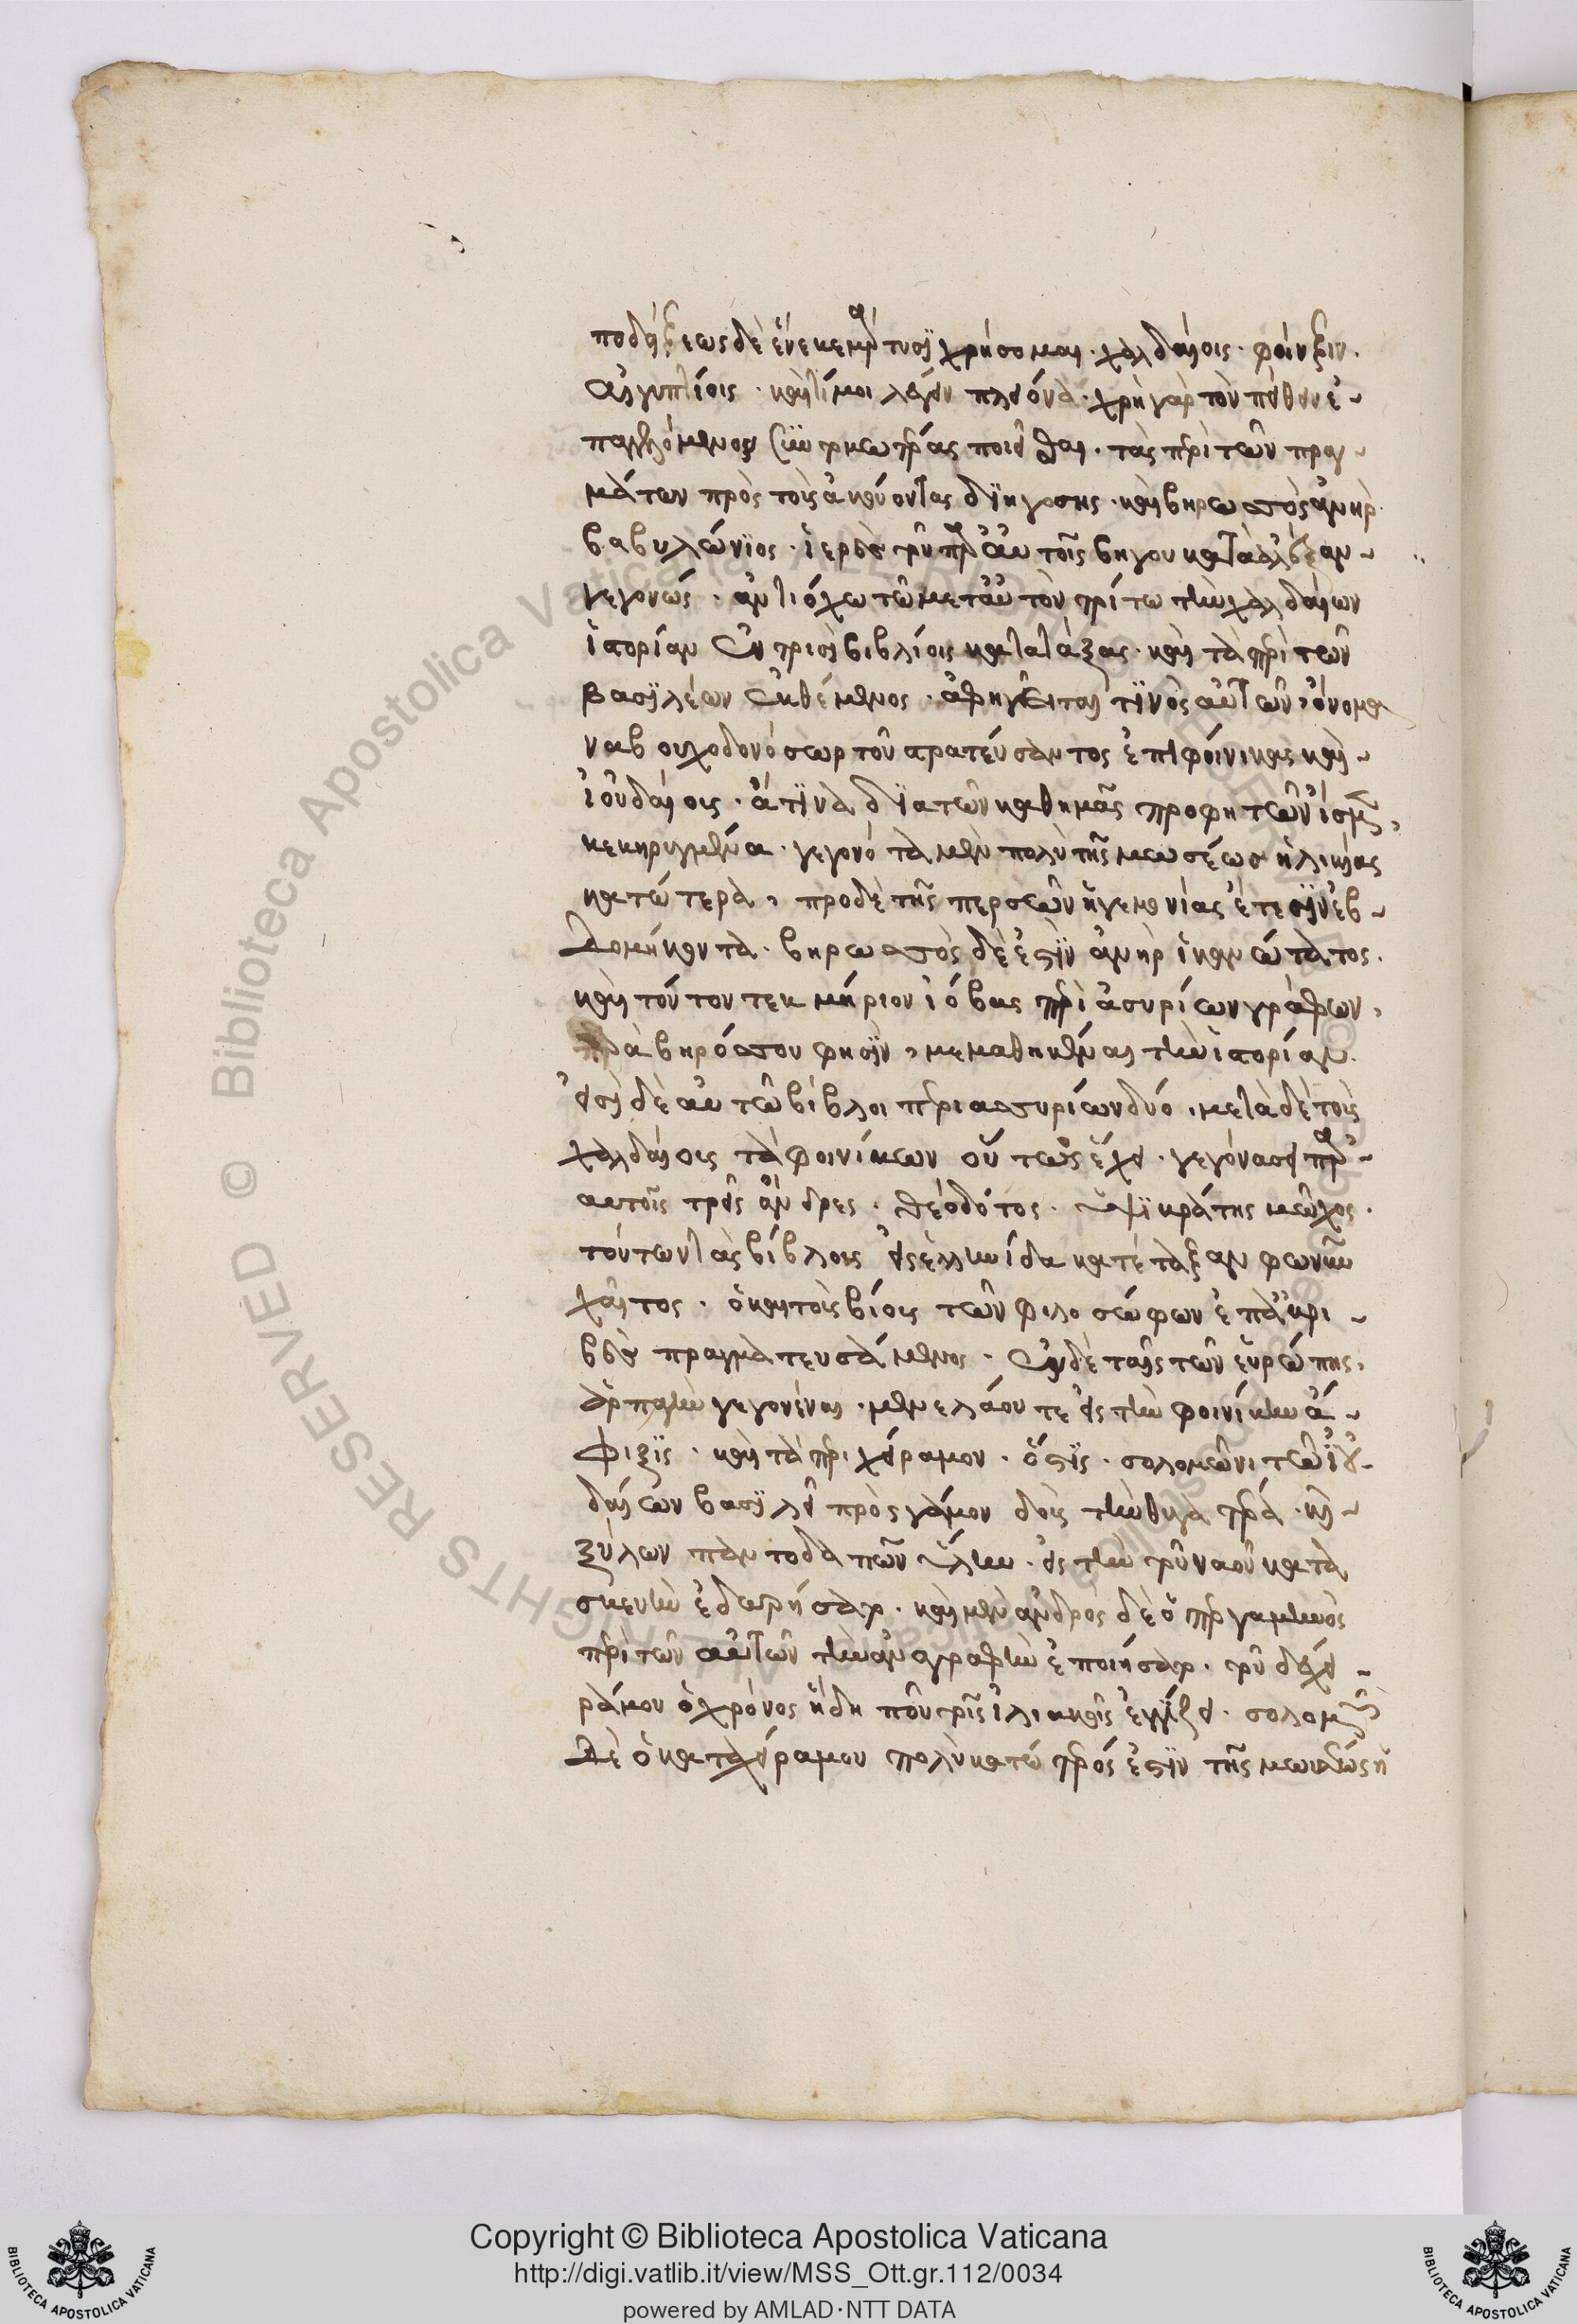 ποδείξεως δὲ ἕνεκεν μάρτυσϊ χρήσομαι· χαλδαίοις· φοίνιξιν·
αἰγυπτίοις· καὶ τί μοι λέγειν πλείονα· χρὴ γὰρ τὸν πείθειν ἐ-
παγγελλόμενον συντομωτέρας ποιεῖσθαι· τὰς περὶ τῶν πραγ-
μάτων πρὸς τοὺς ἀκούοντας δϊηγήσεις· καὶ βηρωσσὸς ἀνὴρ
βαβυλώνϊος· ἱερεὺς τοῦ παρ' αὐτοῖς βήλου κατὰ ἀλέξαν-
γεγονώς· ἀντιόχω τῶ μετ' αὐτὸν τρίτω τὴν χαλδαίων
ἱστορίαν ἐν τρισὶ βιβλίοις κατατάξας· καὶ τὰ περὶ τῶν
βασϊλέων ἐκθέμενος· ἀφηγεῖται τϊνὸς αὐτῶν ὄνομα
ναβουχοδονόσωρ τοῦ στρατεύσαντος ἐπὶ φοίνικας καὶ
ἰουδαίοις· ἅτϊνα δϊα τῶν καθημᾶς προφητῶν ἴσμεν,
κεκηρυγμένα· γεγονότα μὲν πολὺ τῆς μωσέως ἡλικίας
κατώτερα, προ δὲ τῆς περσῶν ἡγεμονίας ἔτεσϊν ἑβ-
δομήκοντα· βηρωσσὸς δὲ ἐστϊν ἀνὴρ ἱκανώτατος·
καὶ τούτου τεκμήριον ἰόβας περὶ ἀσυρίων γράφων,
παρὰ βηρόσσου φησϊν, μεμαθηκέναι τὴν ἱστορίαν·
εἰσὶ δὲ αὐτῶ βίβλοι περι ασσυρίων δυό· μετὰ δὲ τοὺς
χαλδαίους τὰ φοινίκων οὕτως ἔχει· γεγόνασι παρ'
αυτοῖς τρεῖς ἄνδρες· θεόδοτος· ὑψϊκράτης μῶχος·
τούτων τὰς βίβλους εἰς ἑλληνίδα κατέταξαν φωνὴν
χαίτος· ὁ καὶ τοὺς βίους τῶν φιλοσώφων ἐπ' ἀκρι-
βὲς πραγματευσάμενος· ἐν δὲ ταῖς τῶν εὐρώπης,
ἁρπαγὴν γεγονέναι· μενελάου τε εἰς τὴν φοινίκην ἄ-
φιξϊς· καὶ τὰ περι χείραμον· ὅστϊς· σολομῶνι τῶ ἰου-
δαίων βασϊλεῖ πρὸς γάμον δοὺς τὴν θυγατέρα· καὶ
ξύλων παντοδαπῶν ὕλην· εἰς τὴν τοῦ ναοῦ κατα
σκευὴν ἐδωρήσατο· καὶ μένανδρος δὲ ὁ περγαμηνὸς
περὶ τῶν αὐτῶν τὴν ἀναγραφὴν ἐποιήσατο· τοῦ δὲ χει-
ράμου ὁ χρόνος ἤδη που τοῖς ἰλιακοῖς ἐγγίζει· σολομῶν
δὲ ὁ κατα χείραμον πολὺ κατώτερός ἐστϊν τῆς μωυσέως ἡ